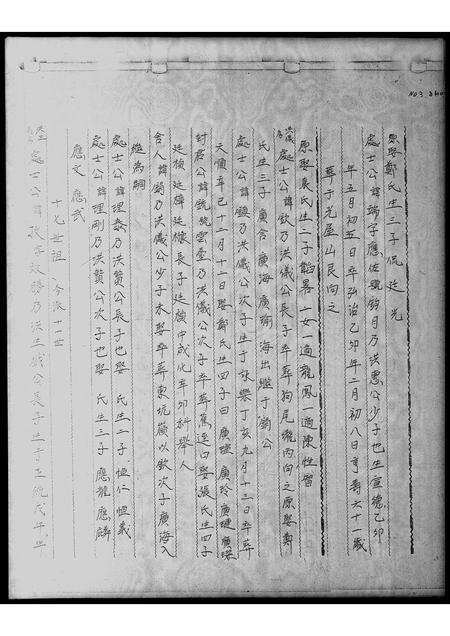 NO3
原娶鄭氏生三子 侃 廷 光
處士公諱端字應佐號鈞月乃洪惠公少子也生宣德乙卯
年五月初五日卒弘治乙卯年二月初八日亨壽六十一歲
葬于光屋山艮向之
原娶袁氏生二子 二女一適龍鳳一適陳性習
洪儀 處士公諱欽乃洪儀公長子卒葬狗尾 內向之原娶鄭
氏生三子 廣含 廣海 廣瑜 海出繼于鈞公
處士公諱 乃洪儀公次子生于永樂丁亥九月十三日卒
天順辛巳十二月十二日娶鄭氏生四子曰 廣理 廣玲 廣璉 廣
封君公諱 號雲 乃洪儀公次子卒葬蕉逕口娶張氏生四子
廷 廷 廷 長子廷 中成化辛卯科舉人
舍人諱 乃洪儀公少子未娶卒葬東坑 以欽次子廣海入
繼為嗣
處士公諱理泰乃洪贊公長子也娶 氏生二子 恒仁 恒義
處士公諱理剛乃洪贊公次子也娶 氏生三子 應龍 應麟
應文 應武
十九世祖 今派十一世
處士公諱 字 乃洪生 公長子生于正統戊午年